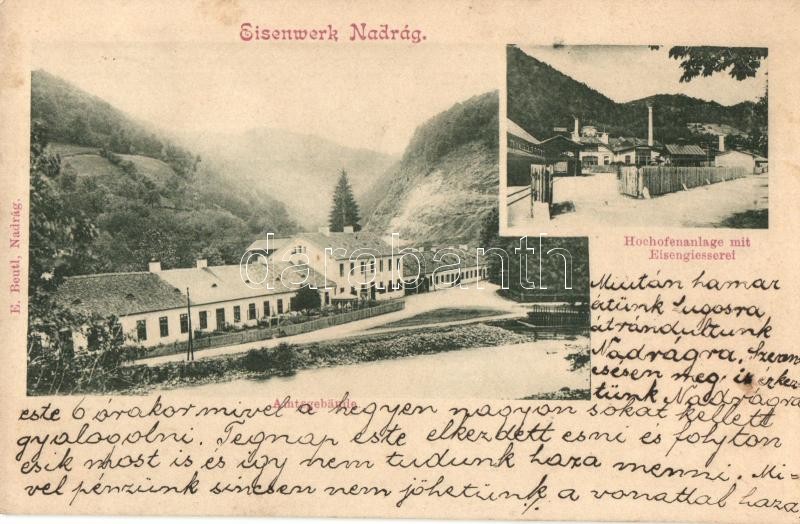 Eisenwerk Nadrág.
E. Beutl, Nadrág.
darabanth
Hochofenanlage mit
Eisengiesserei
Amtsgebäude
Miután hamar
átünk Lugosra
átrándultunk
Nadrágra. Szeren
csésen meg is érkez
tünk Nadrágra
este 6 órakor mivel a hegyen nagyon sokat kellett
gyalogolni. Tegnap este elkezdett esni és folyton
esik most is és így nem tudunk haza menni. Mi-
vel pénzünk sincsen nem jöhetünk a vonattal haza